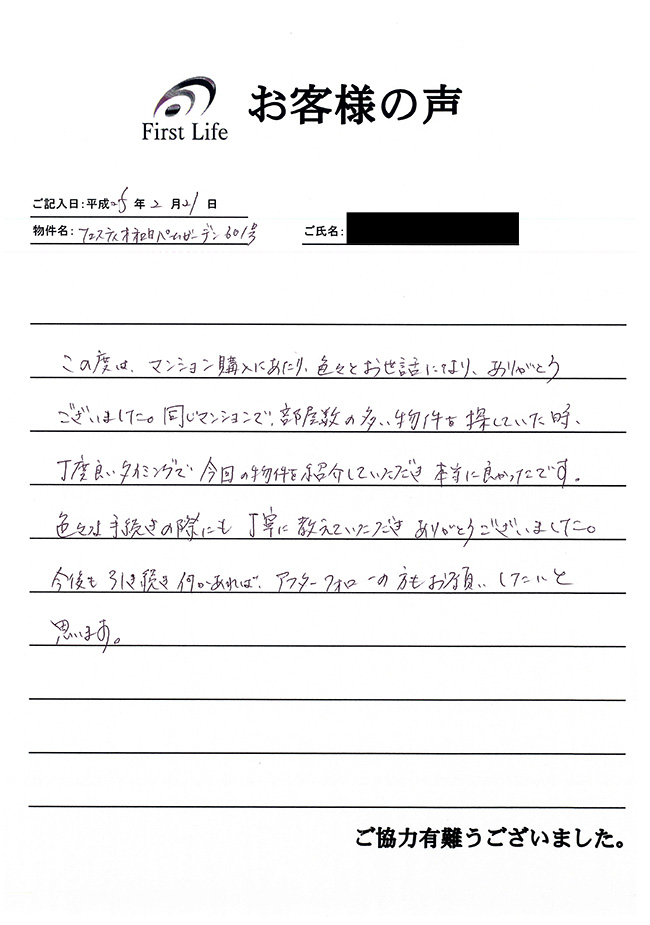 First Life
お客様の声
ご記入日:平成25年2月21日
物件名:フェスティオ和白パームガーデン601号
ご氏名:
この度は、マンション購入にあたり、色々とお世話になり、ありがとう
ございました。同じマンションで、部屋数の多い物件を探していた時、
丁度良いタイミングで今回の物件を紹介していただき本当に良かったです。
色々な手続きの際にも丁寧に教えていただきありがとうございました。
今後も引き続き何かあれば、アフターフォローの方もお願いしたいと
思います。
ご協力有難うございました。